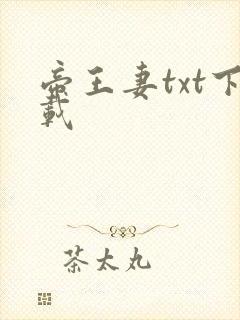 帝王妻txt下
载
茶太丸